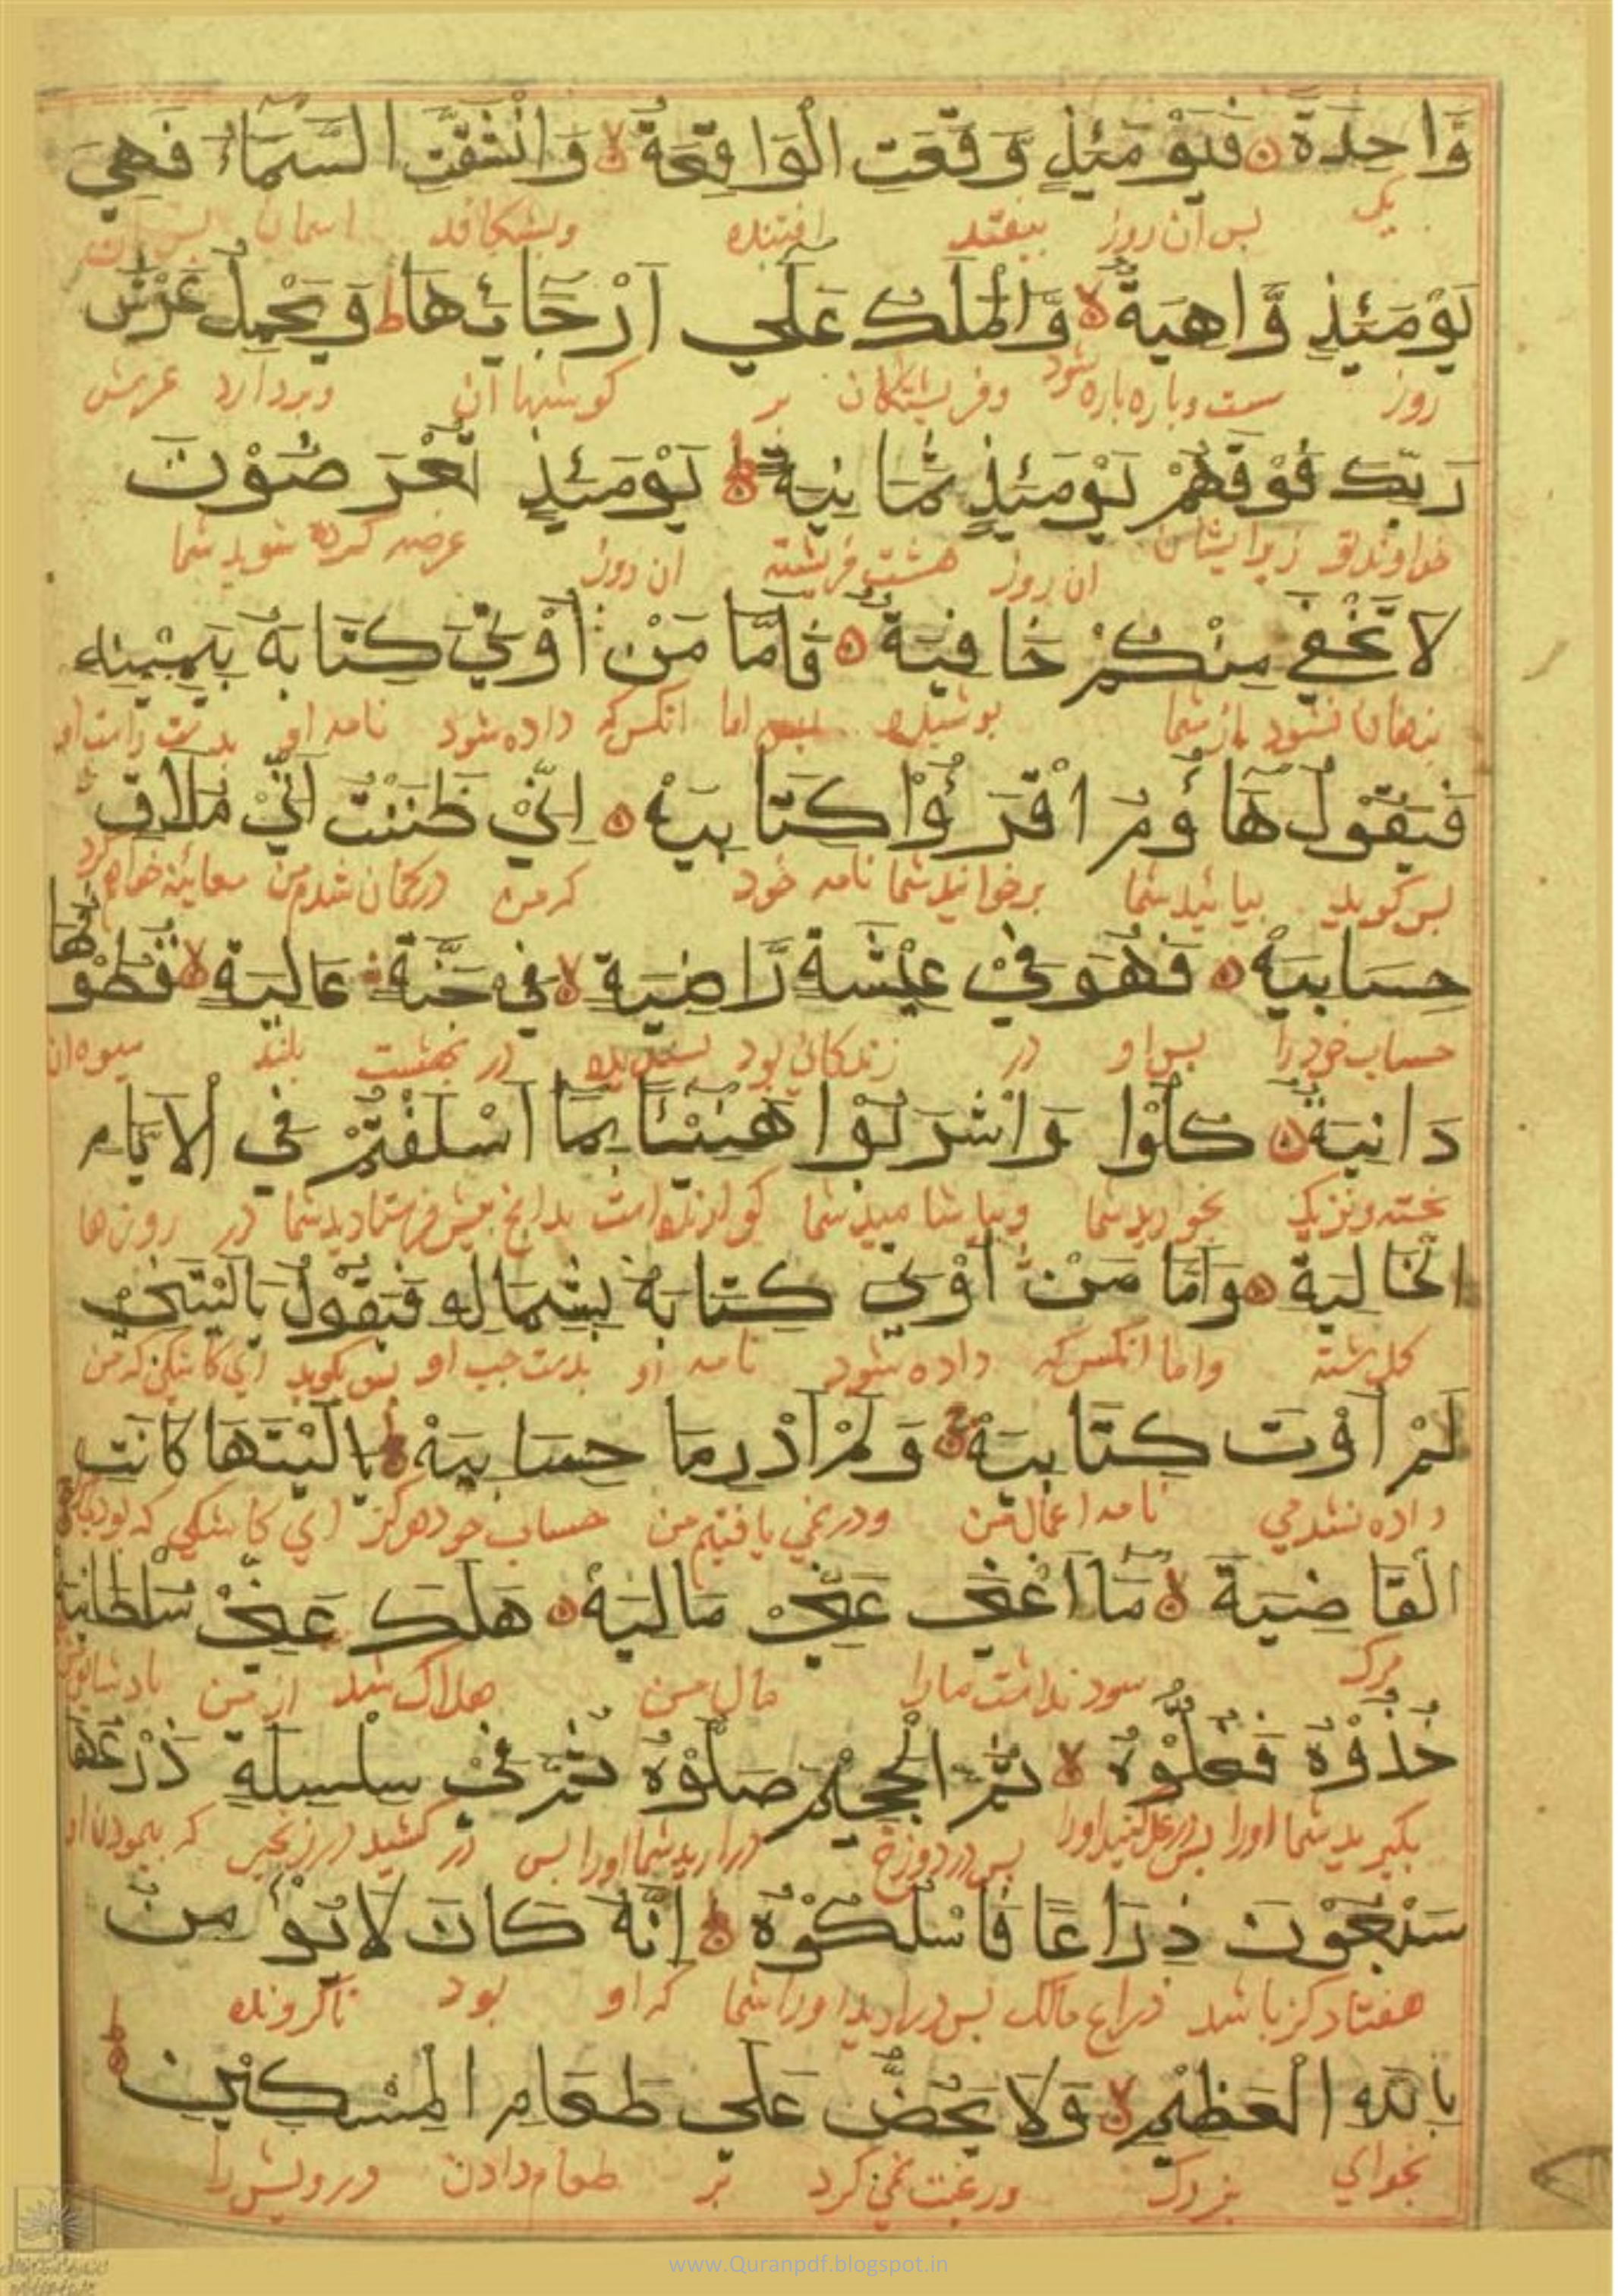 وَّاحِدَةً ۝ فَيَوْمَئِذٍ وَّقَعَتِ الْوَاقِعَةُ ۙ وَانْشَقَّتِ السَّمَاءُ فَهِيَ
يک پس ان روز بيفتد افتنده وبشکافد اسمان پس ان
يَوْمَئِذٍ وَّاهِيَةٌ ۙ وَّالْمَلَكُ عَلَى اَرْجَائِهَا ط وَيَحْمِلُ عَرْشَ
روز سست وپاره پاره شود وفريشتکان بر کوشها ان وبردارد عرش
رَبِّكَ فَوْقَهُمْ يَوْمَئِذٍ ثَمَانِيَةٌ ط يَوْمَئِذٍ تُعْرَضُوْنَ
خداوند تو زبر ايشان ان روز هشت فريشته ان روز عرضه کرده شويد شما
لَا تَخْفٰى مِنْكُمْ خَافِيَةٌ ۝ فَاَمَّا مَنْ اُوْتِيَ كِتَابَهٗ بِيَمِيْنِهٖ
پنهان نشود از شما پوشيده پس اما انکس که داده شود نامه او بدست راست او
فَيَقُوْلُ هَاؤُمُ اقْرَءُوْا كِتَابِيَهْ ۝ اِنِّيْ ظَنَنْتُ اَنِّيْ مُلَاقٍ
پس کويد بيائيد شما برخوانيد شما نامه خود که من درکمان شدم من معاينه خواهم کرد
حِسَابِيَهْ ۝ فَهُوَ فِيْ عِيْشَةٍ رَّاضِيَةٍ ۙ فِيْ جَنَّةٍ عَالِيَةٍ ۙ قُطُوْفُهَا
حساب خود را پس او در زندکانی بود پسنديده در بهشت بلند ميوه ان
دَانِيَةٌ ۝ كُلُوْا وَاشْرَبُوْا هَنِيْئًا بِمَا اَسْلَفْتُمْ فِي الْاَيَّامِ
پخته ونزديک بخوريد شما وبياشاميد شما کوارنده است بدانچ پيش فرستاديد شما در روزها
الْخَالِيَةِ ۝ وَاَمَّا مَنْ اُوْتِيَ كِتَابَهٗ بِشِمَالِهٖ فَيَقُوْلُ يَالَيْتَنِيْ
کذشته واما انکس که داده شود نامه او بدست چپ او پس بکويد اي کاشکي که من
لَمْ اُوْتَ كِتَابِيَهْ ۝ وَلَمْ اَدْرِ مَا حِسَابِيَهْ ۝ يَالَيْتَهَا كَانَتِ
داده نشدمي نامه اعمال من ودر نمي يافتيم من حساب خود هرکز اي کاشکي که بودي
الْقَاضِيَةَ ۝ مَا اَغْنٰى عَنِّيْ مَالِيَهْ ۝ هَلَكَ عَنِّيْ سُلْطٰنِيَهْ
مرک سود نداشت مارا مال من هلاک شد از من
خُذُوْهُ فَغُلُّوْهُ ۙ ثُمَّ الْجَحِيْمَ صَلُّوْهُ ثُمَّ فِيْ سِلْسِلَةٍ ذَرْعُهَا
بکيريد شما اورا پس در غل کنيد اورا پس در دوزخ دراريد شما اورا پس در کشيد در زنجير که
سَبْعُوْنَ ذِرَاعًا فَاسْلُكُوْهُ ط اِنَّهٗ كَانَ لَا يُؤْمِنُ
هفتاد کز باشد ذراع مالک پس دراريد اورا شما که او بود نا کرونده
بِاللّٰهِ الْعَظِيْمِ ۙ وَلَا يَحُضُّ عَلٰى طَعَامِ الْمِسْكِيْنِ ط
بخداي بزرک ورغبت نمي کرد بر طعام دادن درويش را
www.Quranpdf.blogspot.in